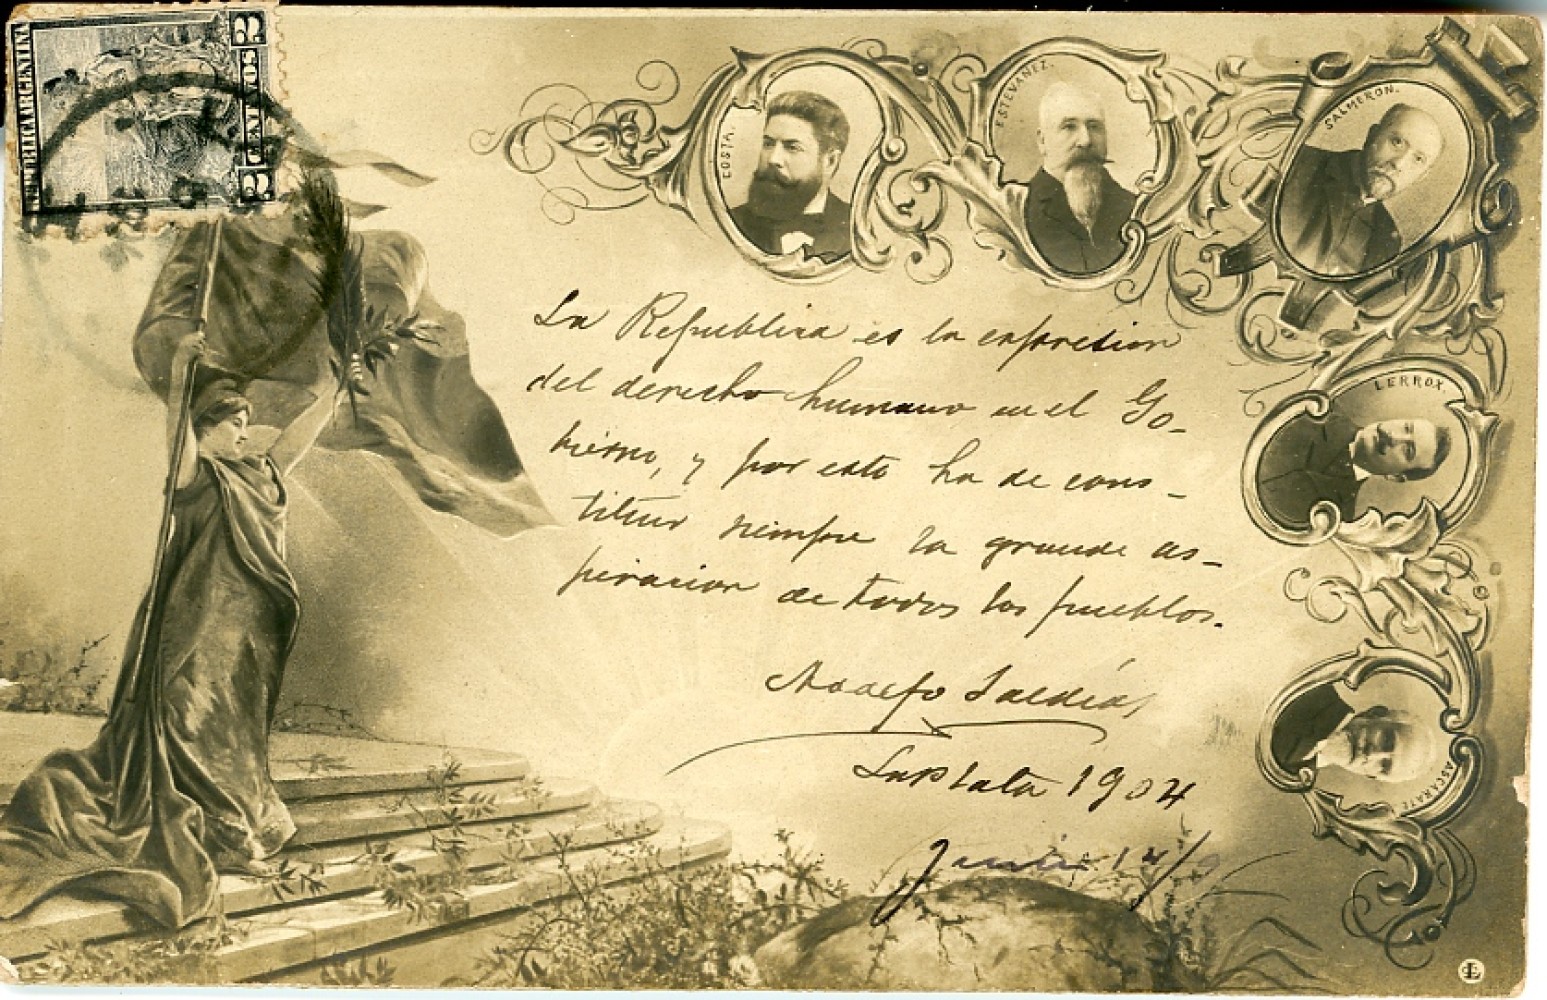 REPUBLICA ARGENTINA
2 CENTAVOS 2
COSTA.
ESTEVANEZ.
SALMERON.
LERROX.
ASCARATE
La Republica es la expresion
del derecho humano en el Go-
bierno, y por esto ha de cons-
tituir siempre la grande as-
piracion de todos los pueblos.
Adolfo Saldías
La Plata 1904
14/